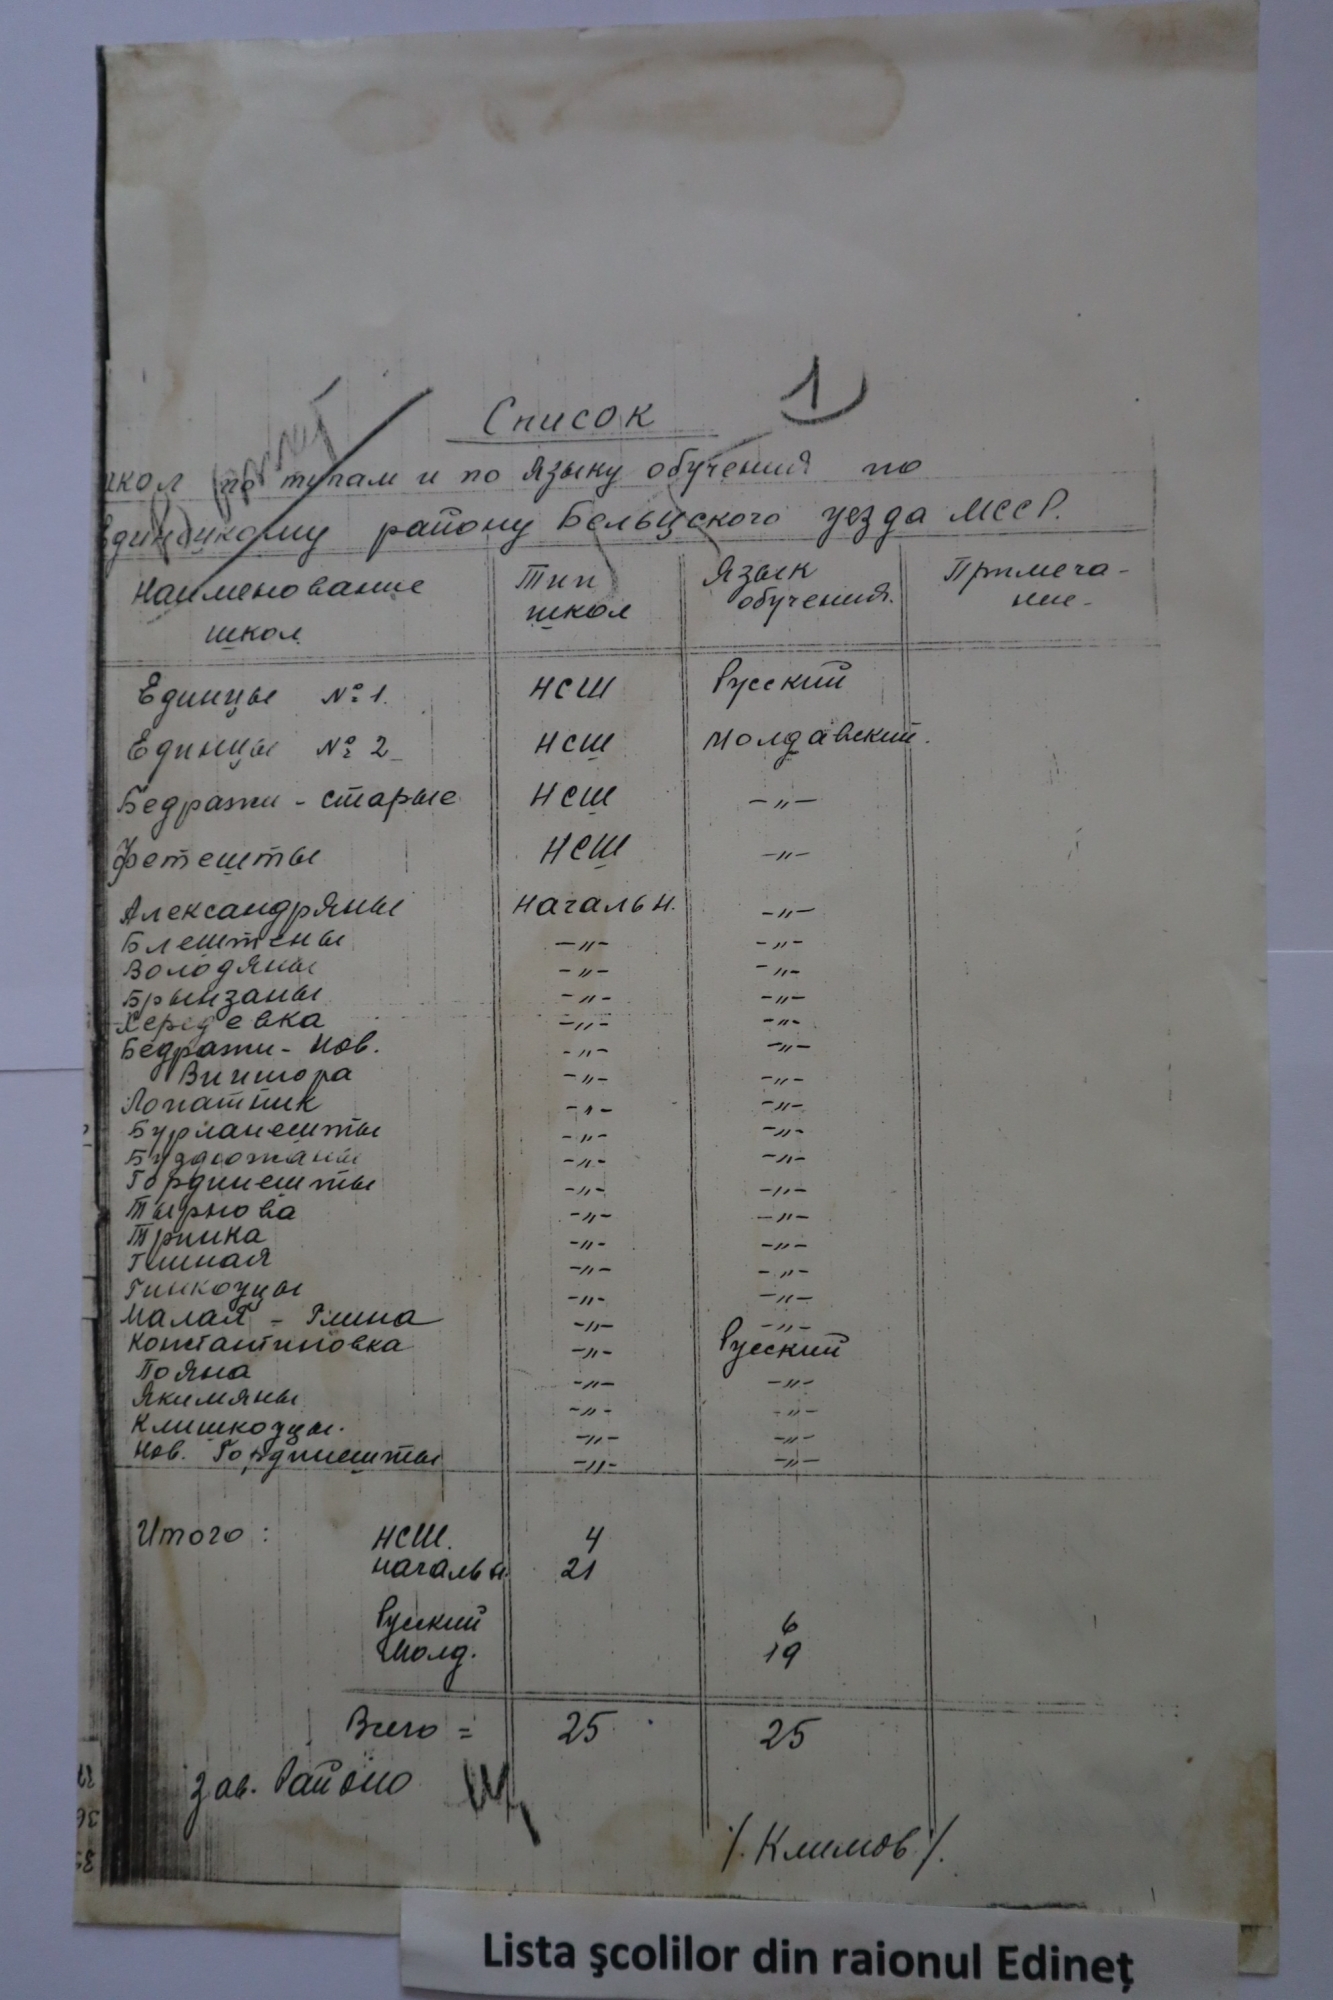 Список
школ по типам и по языку обучения по
Единецкому району Бельцского уезда МССР.
Наименование школ Тип школ Язык обучения. Примечание.
Единцы № 1. НСШ Русский
Единцы № 2 НСШ Молдавский.
Бедражи - старые НСШ -"-
Фетешты НСШ -"-
Александряны Начальн. -"-
Блештены -"- -"-
Володяны -"- -"-
Брынзаны -"- -"-
-"- -"-
Бедражи - Нов. -"- -"-
Виишора -"- -"-
Лопатник -"- -"-
Бурланешты -"- -"-
Буздюжаны -"- -"-
Гординешты -"- -"-
Тырнова -"- -"-
Тринка -"- -"-
-"- -"-
Гинкоуцы -"- -"-
Малая - -"- -"-
Константиновка -"- Русский
Пояна -"- -"-
Якимяны -"- -"-
Клишкоуцы. -"- -"-
Нов. Гординешты -"- -"-
Итого: НСШ. 4
Начальн. 21
Русский 6
Молд. 19
Всего = 25 25
Зав. Районо
/. Климов /.
Lista școlilor din raionul Edineț